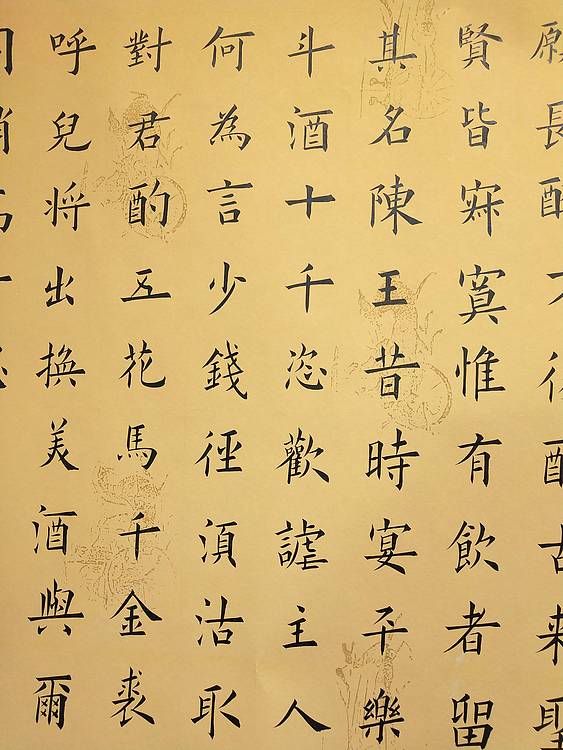 願長醉不復醒古來聖
賢皆寂寞惟有飲者留
其名陳王昔時宴平樂
斗酒十千恣歡謔主人
何為言少錢徑須沽取
對君酌五花馬千金裘
呼兒將出換美酒與爾